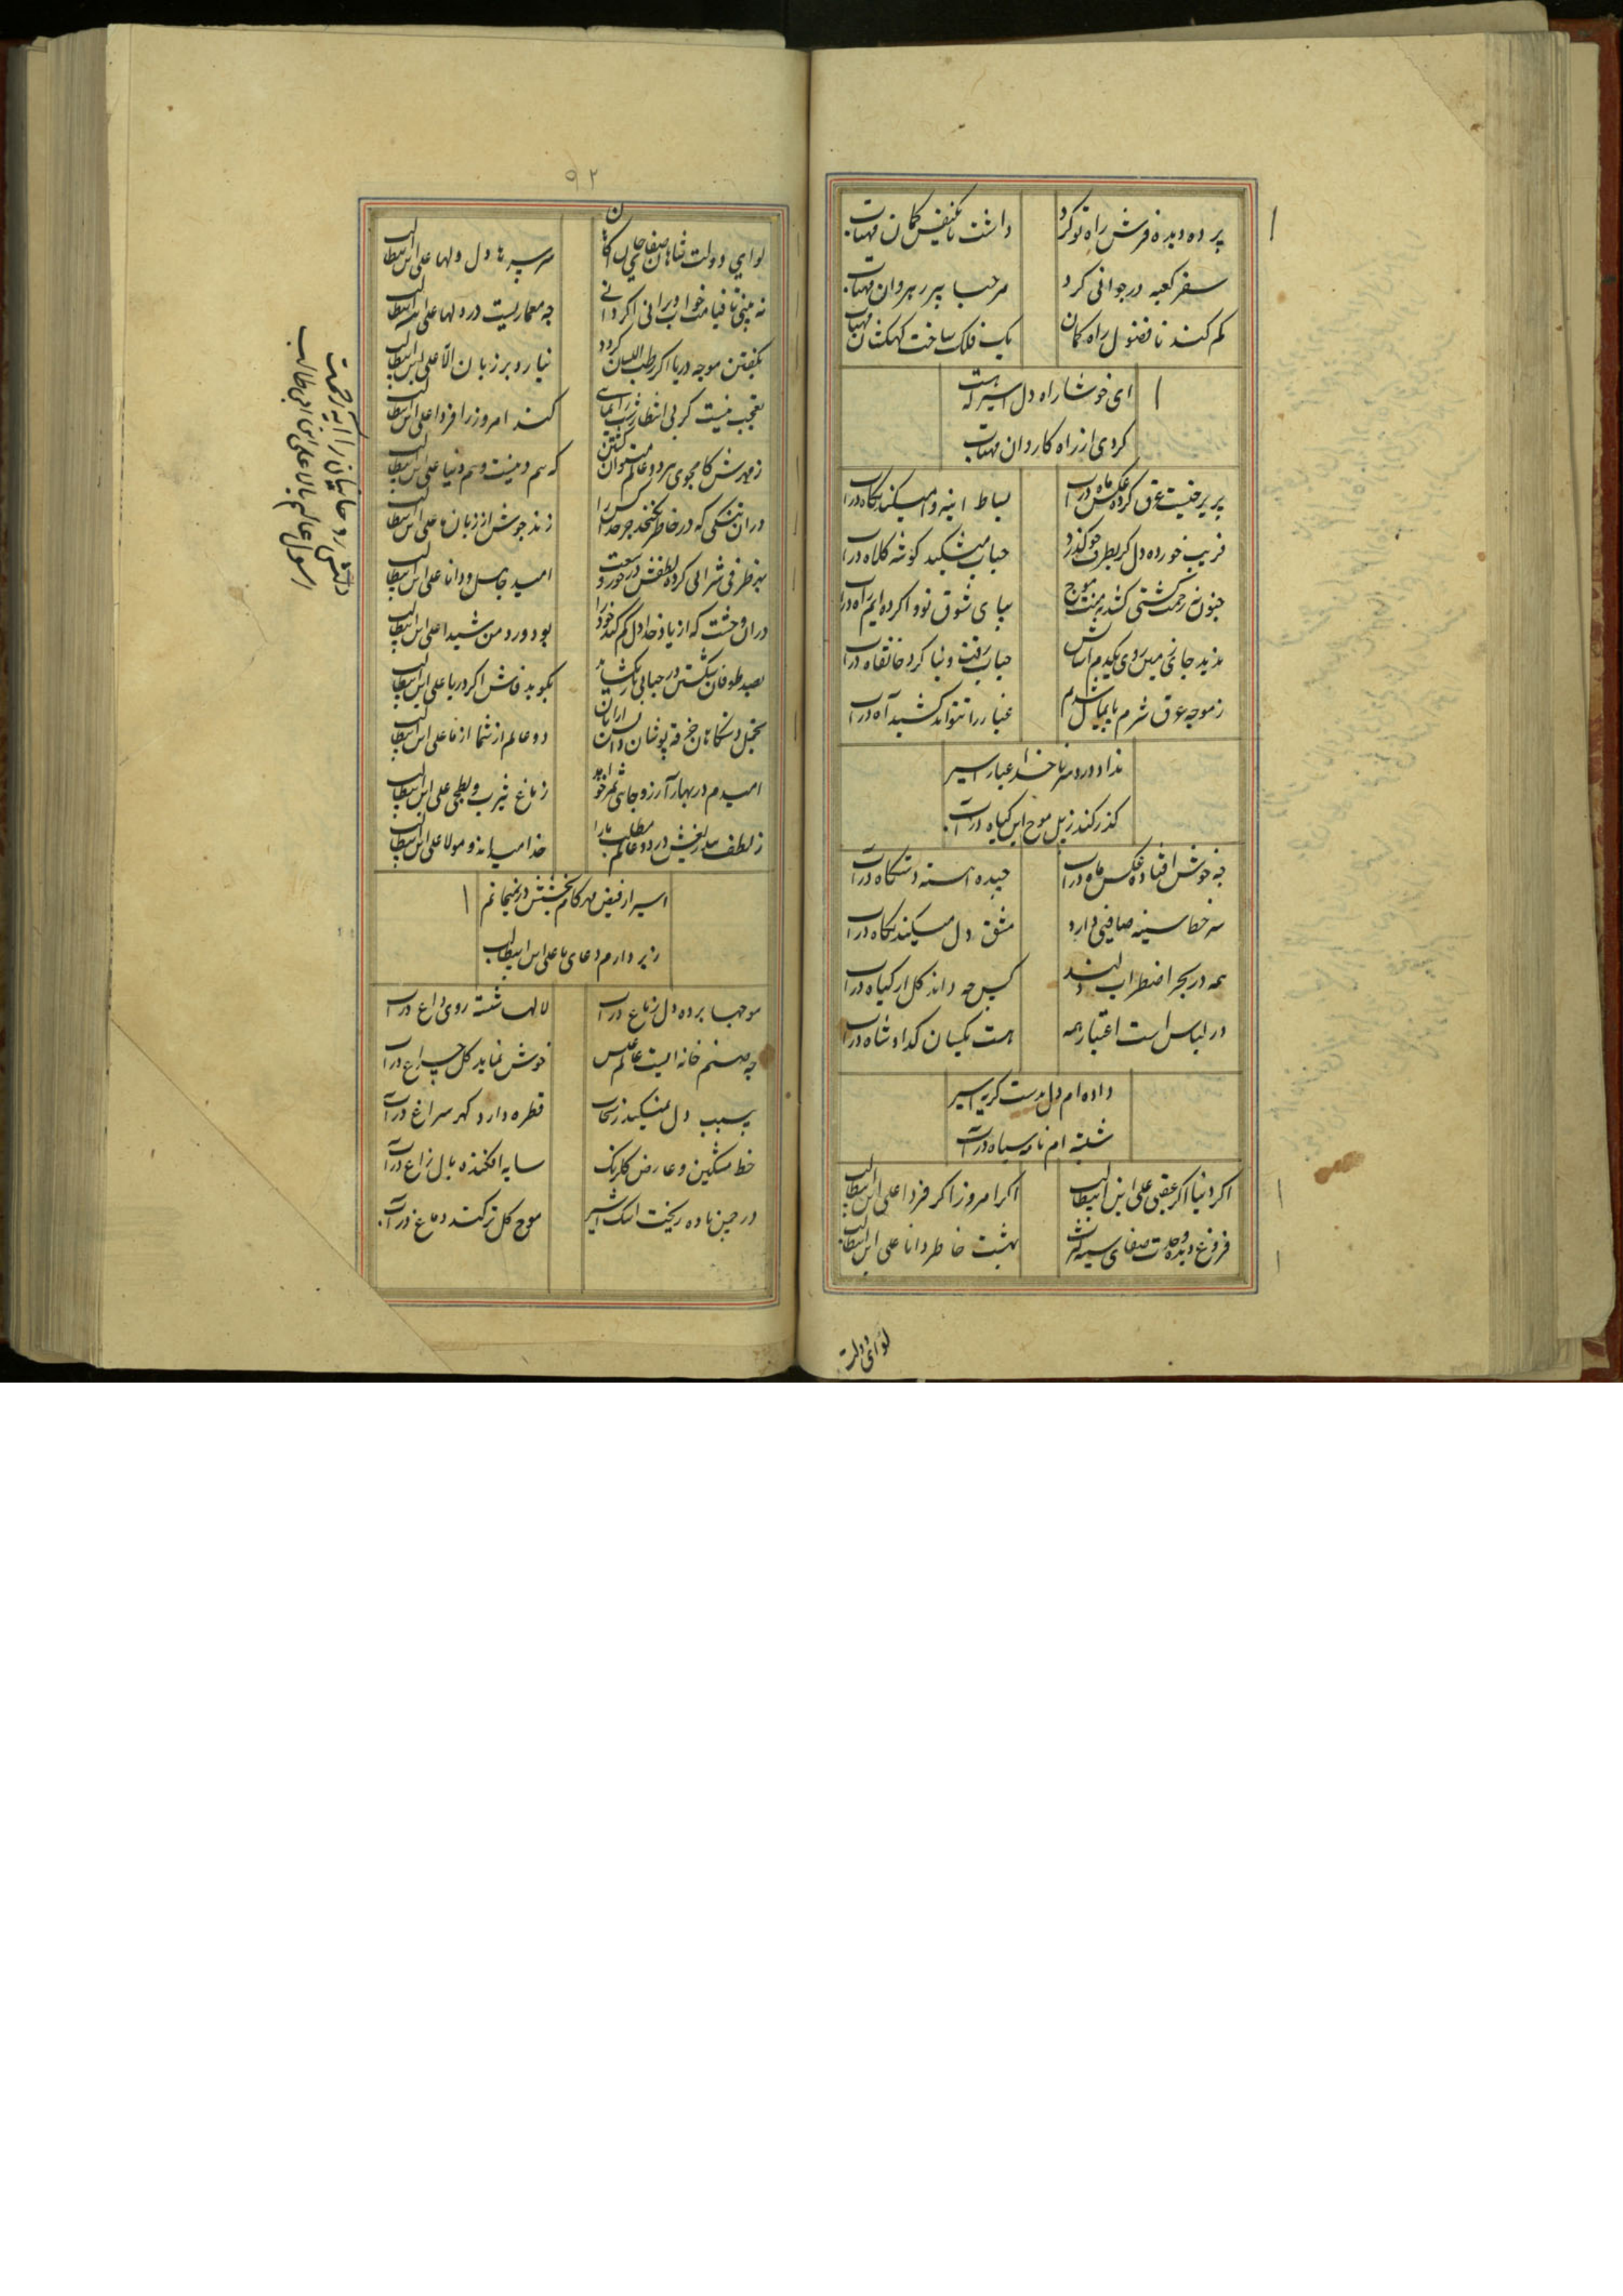 پرده دیده فرش راه تو کرد
داشت تا کیفیش کمان مهتاب
سفر کعبه در جوانی کرد
مرحبا پیر رهروان مهتاب
کم کند تا فضول راه کمان
یک فلک ساخت کهکشان مهتاب
ای خوشا راه دل اسیر که هست
کردی از راه کاردان مهتاب
پریرخیست عرق کرده عکس ماه در آب
بساط اینه وا میکند نکاه در آب
فریب خورده دل کر بطرف جو کذرد
حباب میشکند کوشه کلاه در آب
جنون نه زحمت کشتی کشد نه منت موج
بپای شوق تو وا کرده ایم راه در آب
حباب رفت و بنا کرد خانقاه در آب
ز موجه عرق شرم پایمال شدم
غبار را نتواند کشید آه در آب
نداد دردسر ناخدا غبار اسیر
کذر کند ز پل موج این کیاه در آب
چه خوش افتاده عکس ماه در آب
چیده اهسته دستکاه در آب
سر خط سینه صافیی دارد
مشق دل میکند نکاه در آب
همه در بحر اضطراب دلند
کس چه داند کل از کیاه در آب
در لباس است اعتبار همه
هست یکسان کدا و شاه در آب
داده ام دل بدست کریه اسیر
شسته ام نامه سیاه در آب
اکر دنیا اکر عقبی علی ابن ابیطالب
اکر امروز اکر فردا علی ابن ابیطالب
فروغ دیده وحدت صفای سینه کثرت
بهشت خاطر دانا علی ابن ابیطالب
لوای دولت
۹۲
لوای دولت شاهان صفای
سر سپرها دل دلها علی ابن ابیطالب
نه بینی تا قیامت خواب ویرانی اکر دانی
چه معماریست در دلها علی ابن ابیطالب
بکفتن موجه دریا اکر رطب اللسان کردد
نیارد بر زبان الا علی ابن ابیطالب
تعجب نیست کر بی انتظار شب
کند امروز را فردا علی ابن ابیطالب
ز مهرش کامجوی هر دو عالم میتوان کفتن
که هم دینست و هم دنیا علی ابن ابیطالب
دران تنکی که در خاطر نکنجد جز خدا کس را
زند جوش از زبان ها علی ابن ابیطالب
بهر ظرفی شرابی کرده لطفش در خور وسعت
امید جاهل و دانا علی ابن ابیطالب
دران وحشت که از یاد خدا دل کم کند خود را
بود ورد من شیدا علی ابن ابیطالب
بصد طوفان شکستن در حبابی
بکوید فاش اکر دریا علی ابن ابیطالب
تجمل دستکاهان خرقه پوشان
دو عالم از شما از ما علی ابن ابیطالب
امیدم در بهار آرزو جاهی ثمر خواهد
ز باغ یثرب و بطحی علی ابن ابیطالب
ز لطف بیدریغش در دو عالم مطلب ما را
خدا میداند و مولا علی ابن ابیطالب
اسیر از فیض مهر کام بخشش در نمیمانم
ز بر دارم دعای یا علی ابن ابیطالب
موجها برده دل ز باغ در آب
لالها شسته روی داغ در آب
چه صنم خانه ایست عالم عکس
خوش نماید کل چراغ در آب
بیسبب دل نمیکند ز
قطره دارد کهر سراغ در آب
خط مشکین و عارض کلرنک
سایه افکنده بال زاغ در آب
در چمن باده ریخت اشک اسیر
موج کل تر کند دماغ در آب
دلش روحانیان را آیه رحمت
رسول عالم بالا علی ابن ابی طالب